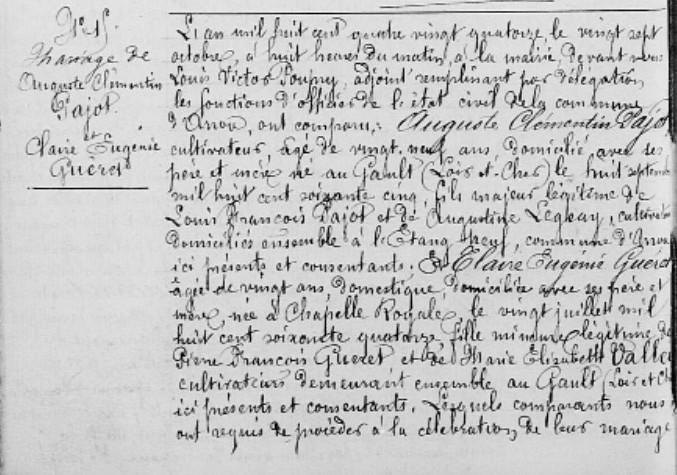 Mariage de
Auguste Clémentin
Pajot
et
Claire Eugénie
Guéret
L'an mil huit cent quatre vingt quatorze le vingt sept
octobre, à huit heures du matin, à la mairie, devant nous
Louis Victor Poupry, adjoint remplissant par délégation
les fonctions d'officier de l'état civil de la commune
d'Arrou, ont comparu: Auguste Clémentin Pajot
cultivateur, âgé de vingt-neuf ans domicilié avec ses
père et mère né au Gault (Loir et-Cher) le huit septembre
mil huit cent soixante cinq, fils majeur légitime de
Louis François Pajot et de Augustine Legeay, cultivateurs
domiciliés ensemble à l'Etang Neuf, commune d'Arrou
ici présents et consentants. Et Claire Eugénie Gueret
âgée de vingt ans, domestique, domiciliée avec ses père et
mère, née à Chapelle Royale, le vingt juillet mil
huit cent soixante quatorze, fille mineure légitime de
Pierre François Gueret et de Marie Elizabeth Vallée
cultivateurs demeurant ensemble au Gault (Loir et Ch
ici présents et consentants. Lesquels comparants nous
ont requis de procéder à la célébration de leur mariage